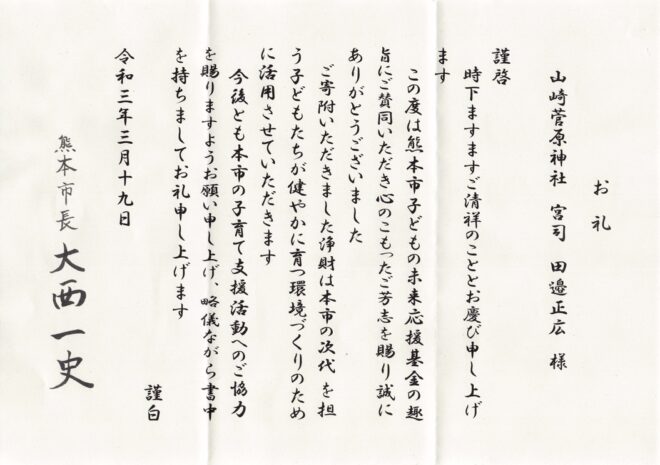 お礼
山崎菅原神社 宮司 田邉正広 様
謹啓
時下ますますご清祥のこととお慶び申し上げ
ます
この度は熊本市子どもの未来応援基金の趣
旨にご賛同いただき心のこもったご芳志を賜り誠に
ありがとうございました
ご寄附いただきました浄財は本市の次代を担
う子どもたちが健やかに育つ環境づくりのため
に活用させていただきます
今後とも本市の子育て支援活動へのご協力
を賜りますようお願い申し上げ、略儀ながら書中
を持ちましてお礼申し上げます
謹白
令和三年三月十九日
熊本市長 大西一史